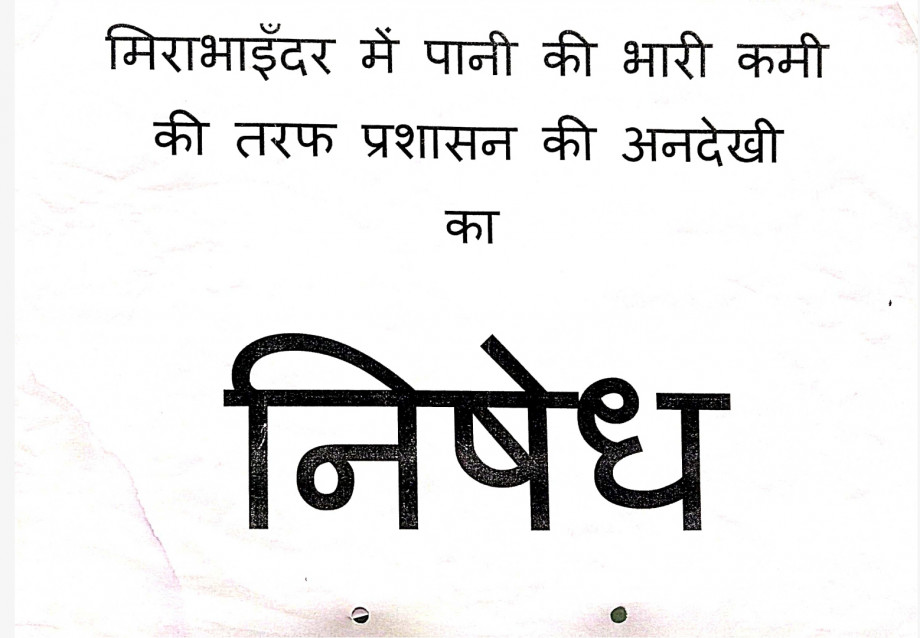 मिराभाइँदर में पानी की भारी कमी
की तरफ प्रशासन की अनदेखी
का
निषेध